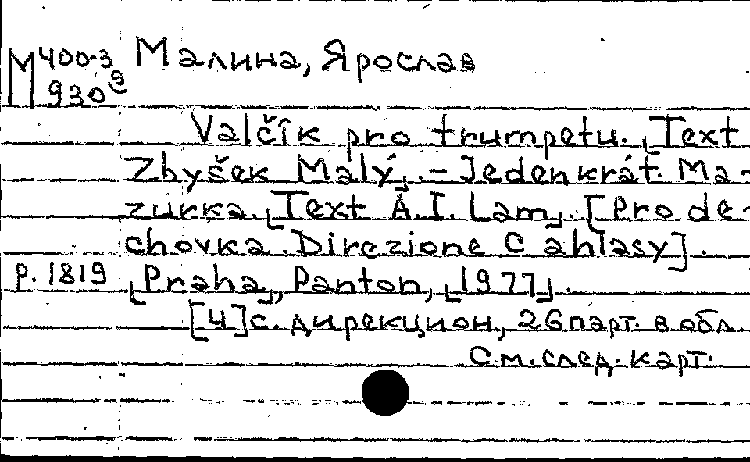 М 400-3 Малина, Ярослав
930 э
Valčík pro trumpetu. [Text
Zbyšek Malý]. - Jedenkrát. Ma-
zurka. [Text A.I. Lam]. [Pro de-
chovka. Direzione C a hlasy].
р. 1819 [Praha], Panton, [1977].
[4] с. дирекцион, 26 парт. в обл.
См. след. карт.